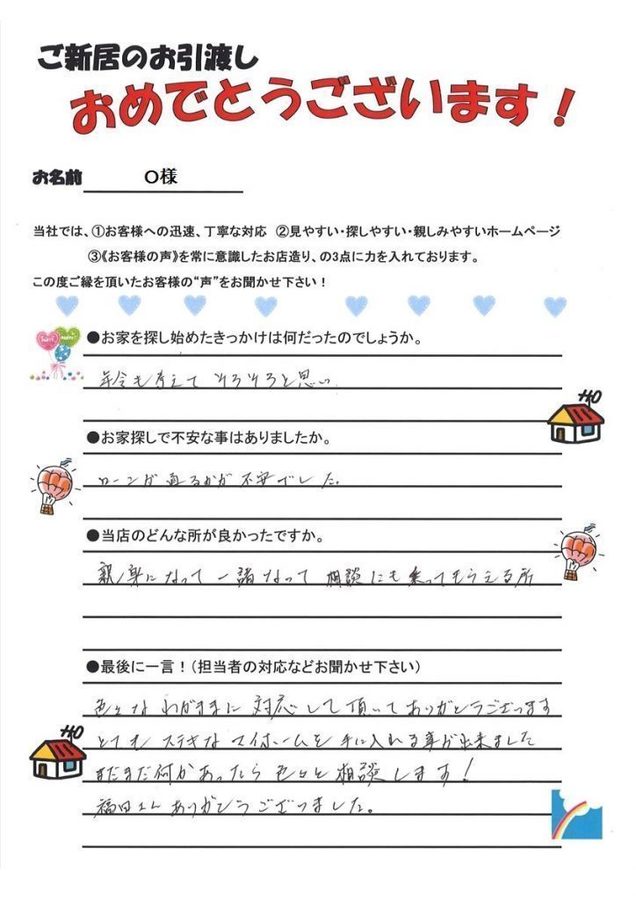 ご新居のお引渡し
おめでとうございます!
お名前 O様
当社では、①お客様への迅速、丁寧な対応 ②見やすい・探しやすい・親しみやすいホームページ
③《お客様の声》を常に意識したお店造り、の3点に力を入れております。
この度ご縁を頂いたお客様の“声”をお聞かせ下さい!
●お家を探し始めたきっかけは何だったのでしょうか。
年令も考えて そろそろと思い
●お家探しで不安な事はありましたか。
ローンが通るかが不安でした。
●当店のどんな所が良かったですか。
親身になって 一諸なって 相談にも乗ってもらえる所
●最後に一言!(担当者の対応などお聞かせ下さい)
色々な わがままに 対応して頂いてありがとうございます
とても ステキな マイホームを 手に入れる事が出来ました
まだまだ何かあったら色々と相談します!
福田さん ありがとうございました。